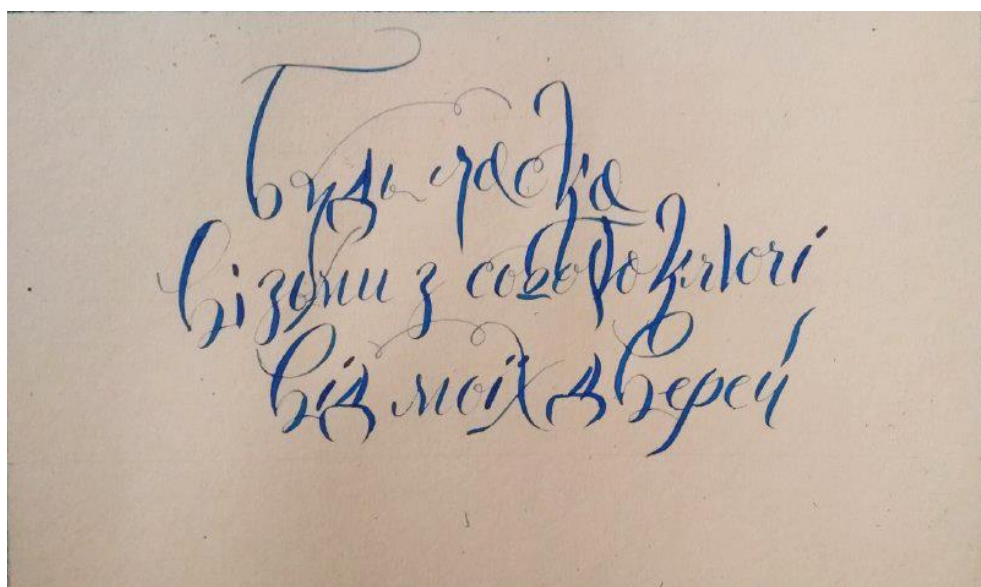 Будь ласка
візьми з собою ключі
від моїх дверей